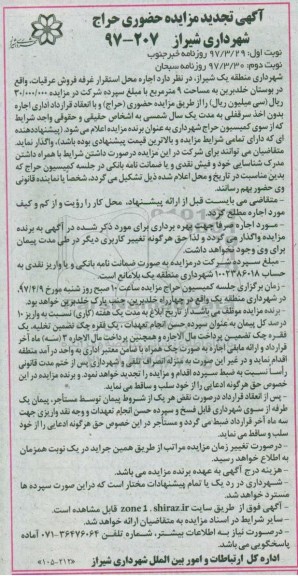 آگهی تجدید مزایده حضوری حراج
شهرداری شیراز ۲۰۷-۹۷
نوبت اول: ۹۷/۳/۲۹ روزنامه خبرجنوب
نوبت دوم: ۹۷/۳/۳۰ روزنامه سبحان
شهرداری منطقه یک شیراز، در نظر دارد اجاره محل استقرار غرفه فروش عرقیات، واقع
در بوستان خلدبرین به مساحت ۹ مترمربع با مبلغ سپرده شرکت در مزایده ۳۰/۰۰۰/۰۰۰
ریال (سی میلیون ریال) را از طریق مزایده حضوری (حراج) و با انعقاد قرارداد اداری اجاره
بدون اخذ سرقفلی به مدت یک سال شمسی به اشخاص حقیقی و حقوقی واجد شرایط
که از سوی کمیسیون حراج شهرداری به عنوان برنده مزایده اعلام می شود. (پیشنهاددهنده
ای که دارای تمامی شرایط مزایده و بالاترین قیمت پیشنهادی بوده باشد)، واگذار نماید.
متقاضیان می توانند برای شرکت در این مزایده درصورت داشتن شرایط با همراه داشتن
مدرک شناسایی خود و فیش نقدی و یا ضمانت نامه بانکی در جلسه کمیسیون حراج که
بدین مناسبت در تاریخ و محل اعلام شده ذیل تشکیل می گردد، شخصا یا نماینده قانونی
وی حضور بهم رسانند.
- متقاضی می بایست قبل از ارائه پیشنهاد، محل کار را رؤیت و از کم و کیف
مورد اجاره مطلع گردد.
- مورد اجاره صرفا جهت بهره برداری برای مورد ذکر شده در آگهی به برنده
مزایده واگذار می گردد و لذا حق هرگونه تغییر کاربری دیگر در طی مدت پیمان
برای وی وجود نخواهد داشت.
- مبلغ سپرده شرکت درمزایده به صورت ضمانت نامه بانکی و یا واریز نقدی به
حساب ۱۰۰۲۳۸۶۰۱۸ شهرداری منطقه یک بلامانع است.
- زمان برگزاری جلسه کمیسیون حراج مزایده ساعت ۱۰ صبح روز شنبه مورخ ۹۷/۴/۹
در شهرداری منطقه یک واقع در چهارراه خلدبرین، جنب پارک خلدبرین خواهد بود.
- برنده مزایده موظف می باشد از تاریخ ابلاغ به مدت یک هفته (کاری) نسبت به واریز ۱۰
درصد کل پیمان به عنوان سپرده حسن انجام تعهدات، یک فقره چک تضمین تخلیه، یک
فقره چک تضمین پرداخت مال الاجاره و همچنین پرداخت مال الاجاره ۳ (سه) ماه آخر
قرارداد و ارائه مابقی اجاره به صورت چک همراه با ضامن معتبر اداری به واحد درآمد منطقه
اقدام نماید و در غیر این صورت به منزله انصراف تلقی و شهرداری پس از ختم مدت قانونی
رأسا نسبت به ضبط سپرده اقدام و مزایده را تجدید خواهد نمود. و برنده مزایده در این
خصوص حق هرگونه ادعایی را از خود سلب و ساقط می نماید.
- پس از انعقاد قرارداد درصورت نقض هر یک از شروط پیمان توسط مستأجر، پیمان یک
طرفه از سوی شهرداری قابل فسخ و سپرده حسن انجام تعهدات و وجه نقد واریزی جهت
سه ماه آخر قرارداد ضبط می گردد و مستأجر در این خصوص حق هرگونه ادعایی را از خود
سلب و ساقط می نماید.
- درصورت تغییر زمان مزایده مراتب از طریق همین جراید در یک نوبت همزمان
به اطلاع خواهد رسید.
- هزینه درج آگهی به عهده برنده مزایده می باشد.
- شهرداری در رد یک یا تمام پیشنهادات مختار است که دراین صورت سپرده ها
مسترد خواهد شد.
- آگهی فوق از طریق سایت zone 1. shiraz.ir قابل مشاهده است.
- سایر شرایط در اسناد مزایده به متقاضیان ارائه خواهد شد.
- درصورت نیاز به اطلاعات بیشتر، شماره تلفن ۳۶۴۷۶۰۶۴-۰۷۱ آماده
پاسخگویی می باشد.
اداره کل ارتباطات و امور بین الملل شهرداری شیراز
«۱۰۵-۲۱۲»